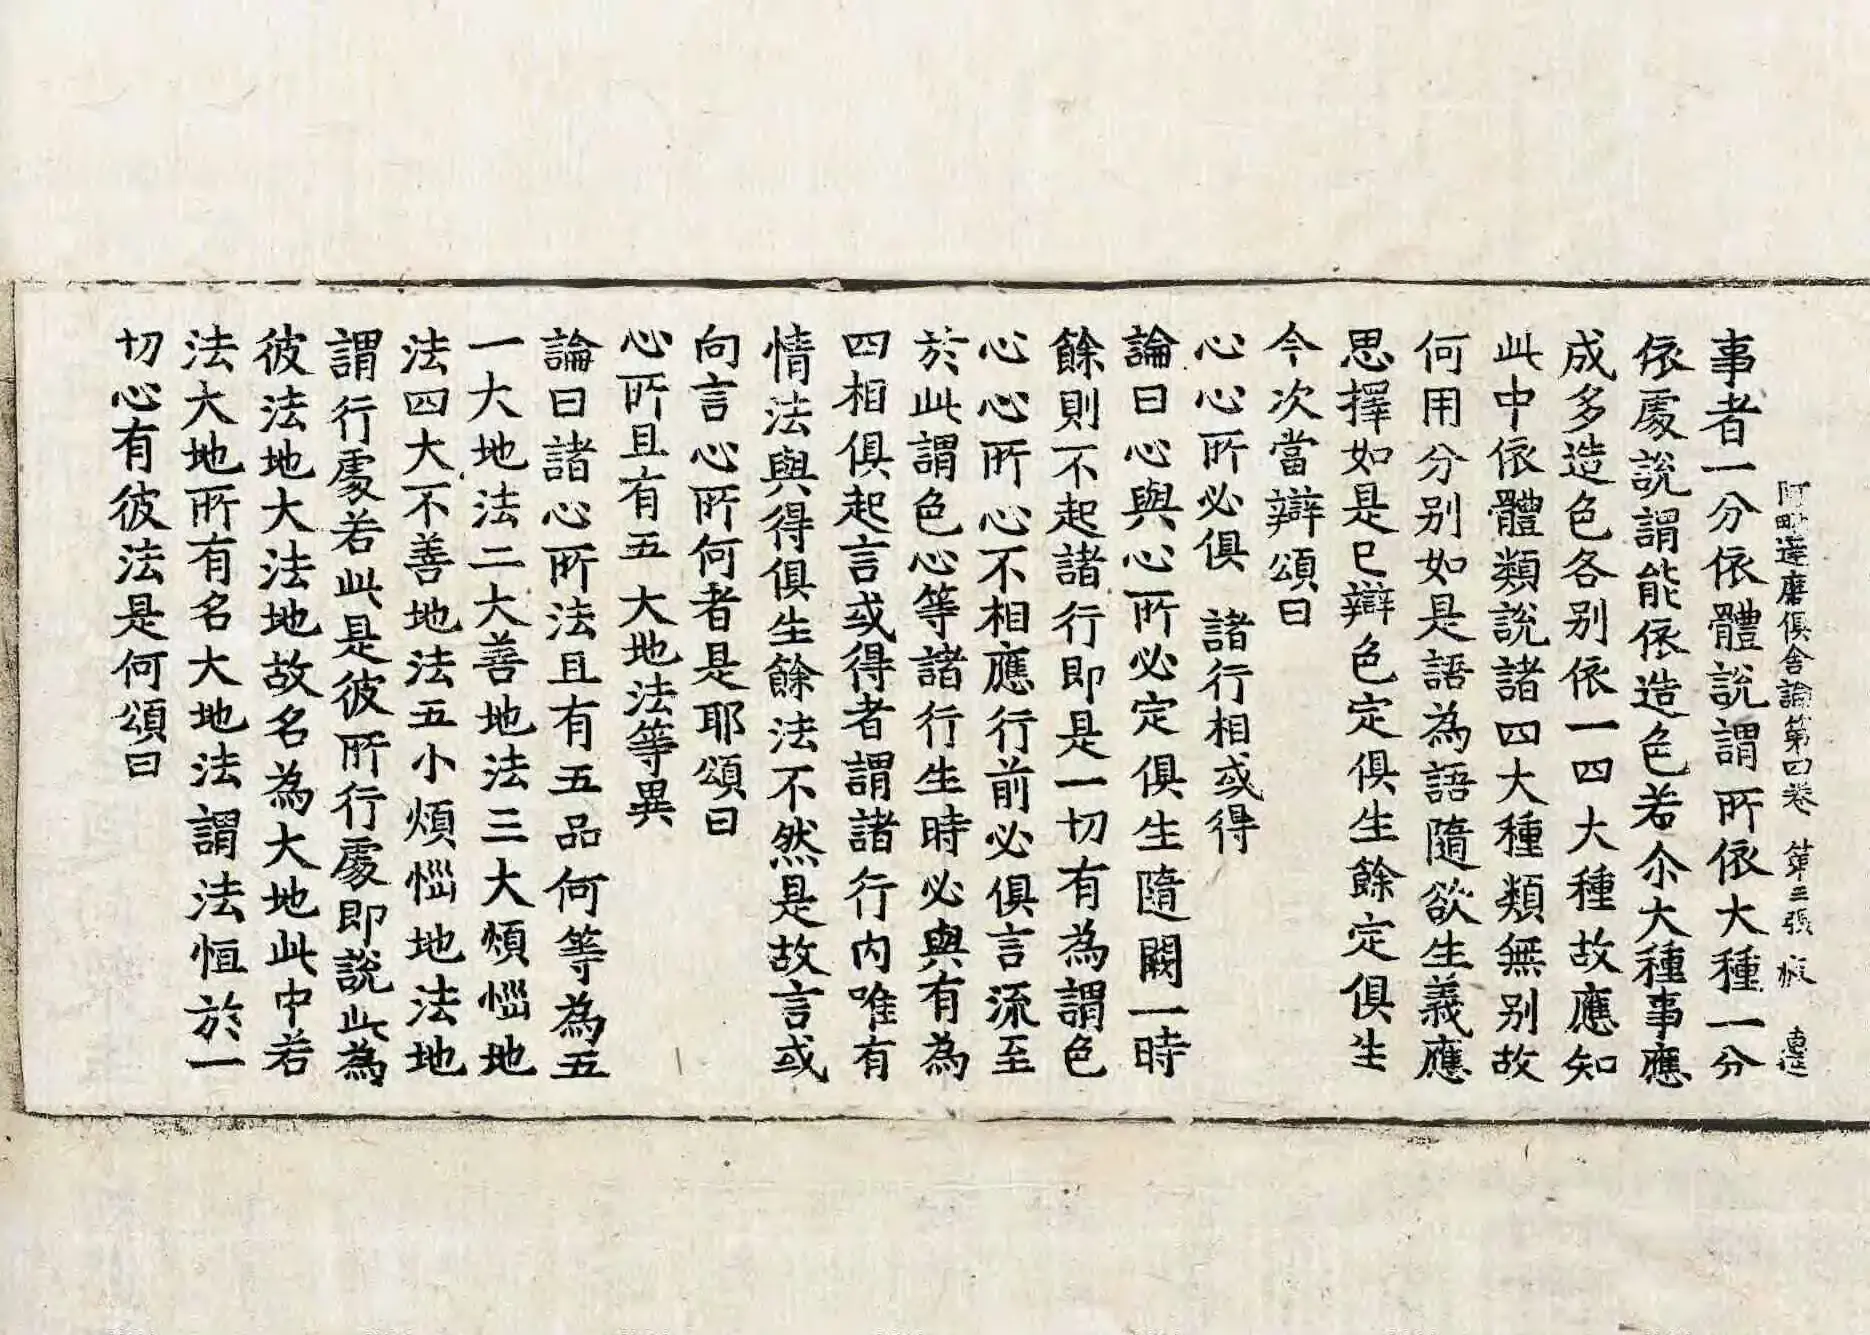 阿毗達磨俱舍論第四卷 第三張
事者一分依體說謂所依大種一分
依處說謂能依造色若尒大種事應
成多造色各別依一四大種故應知
此中依體類說諸四大種類無別故
何用分別如是語為語隨欲生義應
思擇如是已辯色定俱生餘定俱生
今次當辯頌曰
心心所必俱 諸行相或得
論曰心與心所必定俱生隨闕一時
餘則不起諸行即是一切有為謂色
心心所心不相應行前必俱言流至
於此謂色心等諸行生時必與有為
四相俱起言或得者謂諸行內唯有
情法與得俱生餘法不然是故言或
向言心所何者是耶頌曰
心所且有五 大地法等異
論曰諸心所法且有五品何等為五
一大地法二大善地法三大煩惱地
法四大不善地法五小煩惱地法地
謂行處若此是彼所行處即說此為
彼法地大法地故名為大地此中若
法大地所有名大地法謂法恒於一
切心有彼法是何頌曰